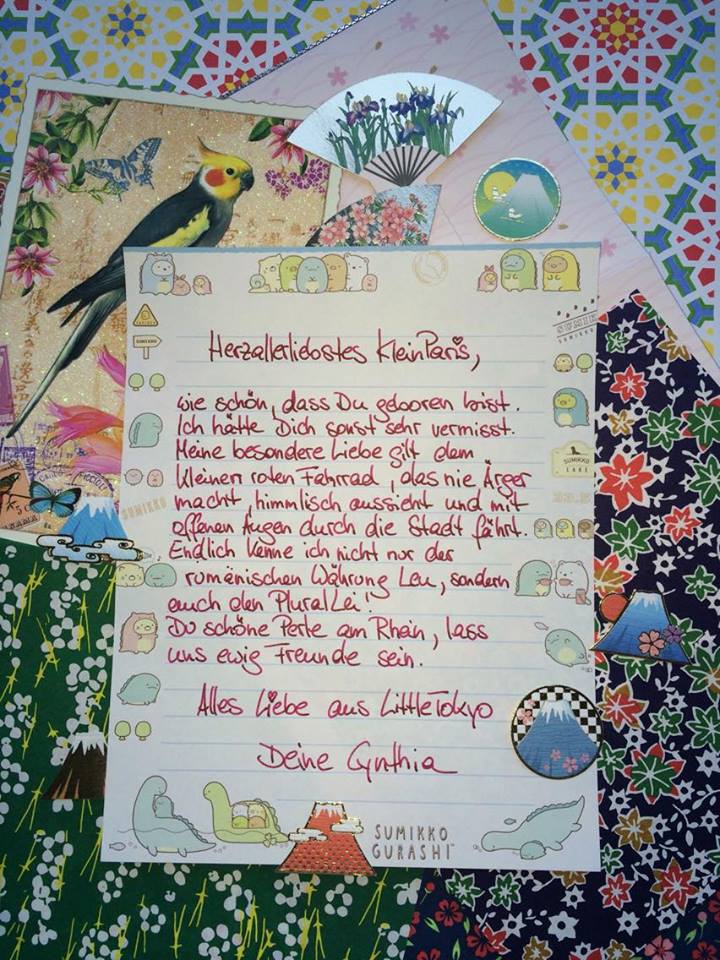 Herzallerliebstes KleinParis,
wie schön, dass Du geboren bist.
Ich hätte Dich sonst sehr vermisst.
Meine besondere Liebe gilt dem
kleinen roten Fahrrad, das nie Ärger
macht, himmlisch aussieht und mit
offenen Augen durch die Stadt fährt.
Endlich kenne ich nicht nur der
romänischen Währung Leu, sondern
auch den Plural Lei!
Du schöne Perle am Rhein, lass
uns ewig Freunde sein.
Alles Liebe aus LittleTokyo
Deine Cynthia
SUMIKKO
SUMIKKO
SUMIKKO
GURASHI™